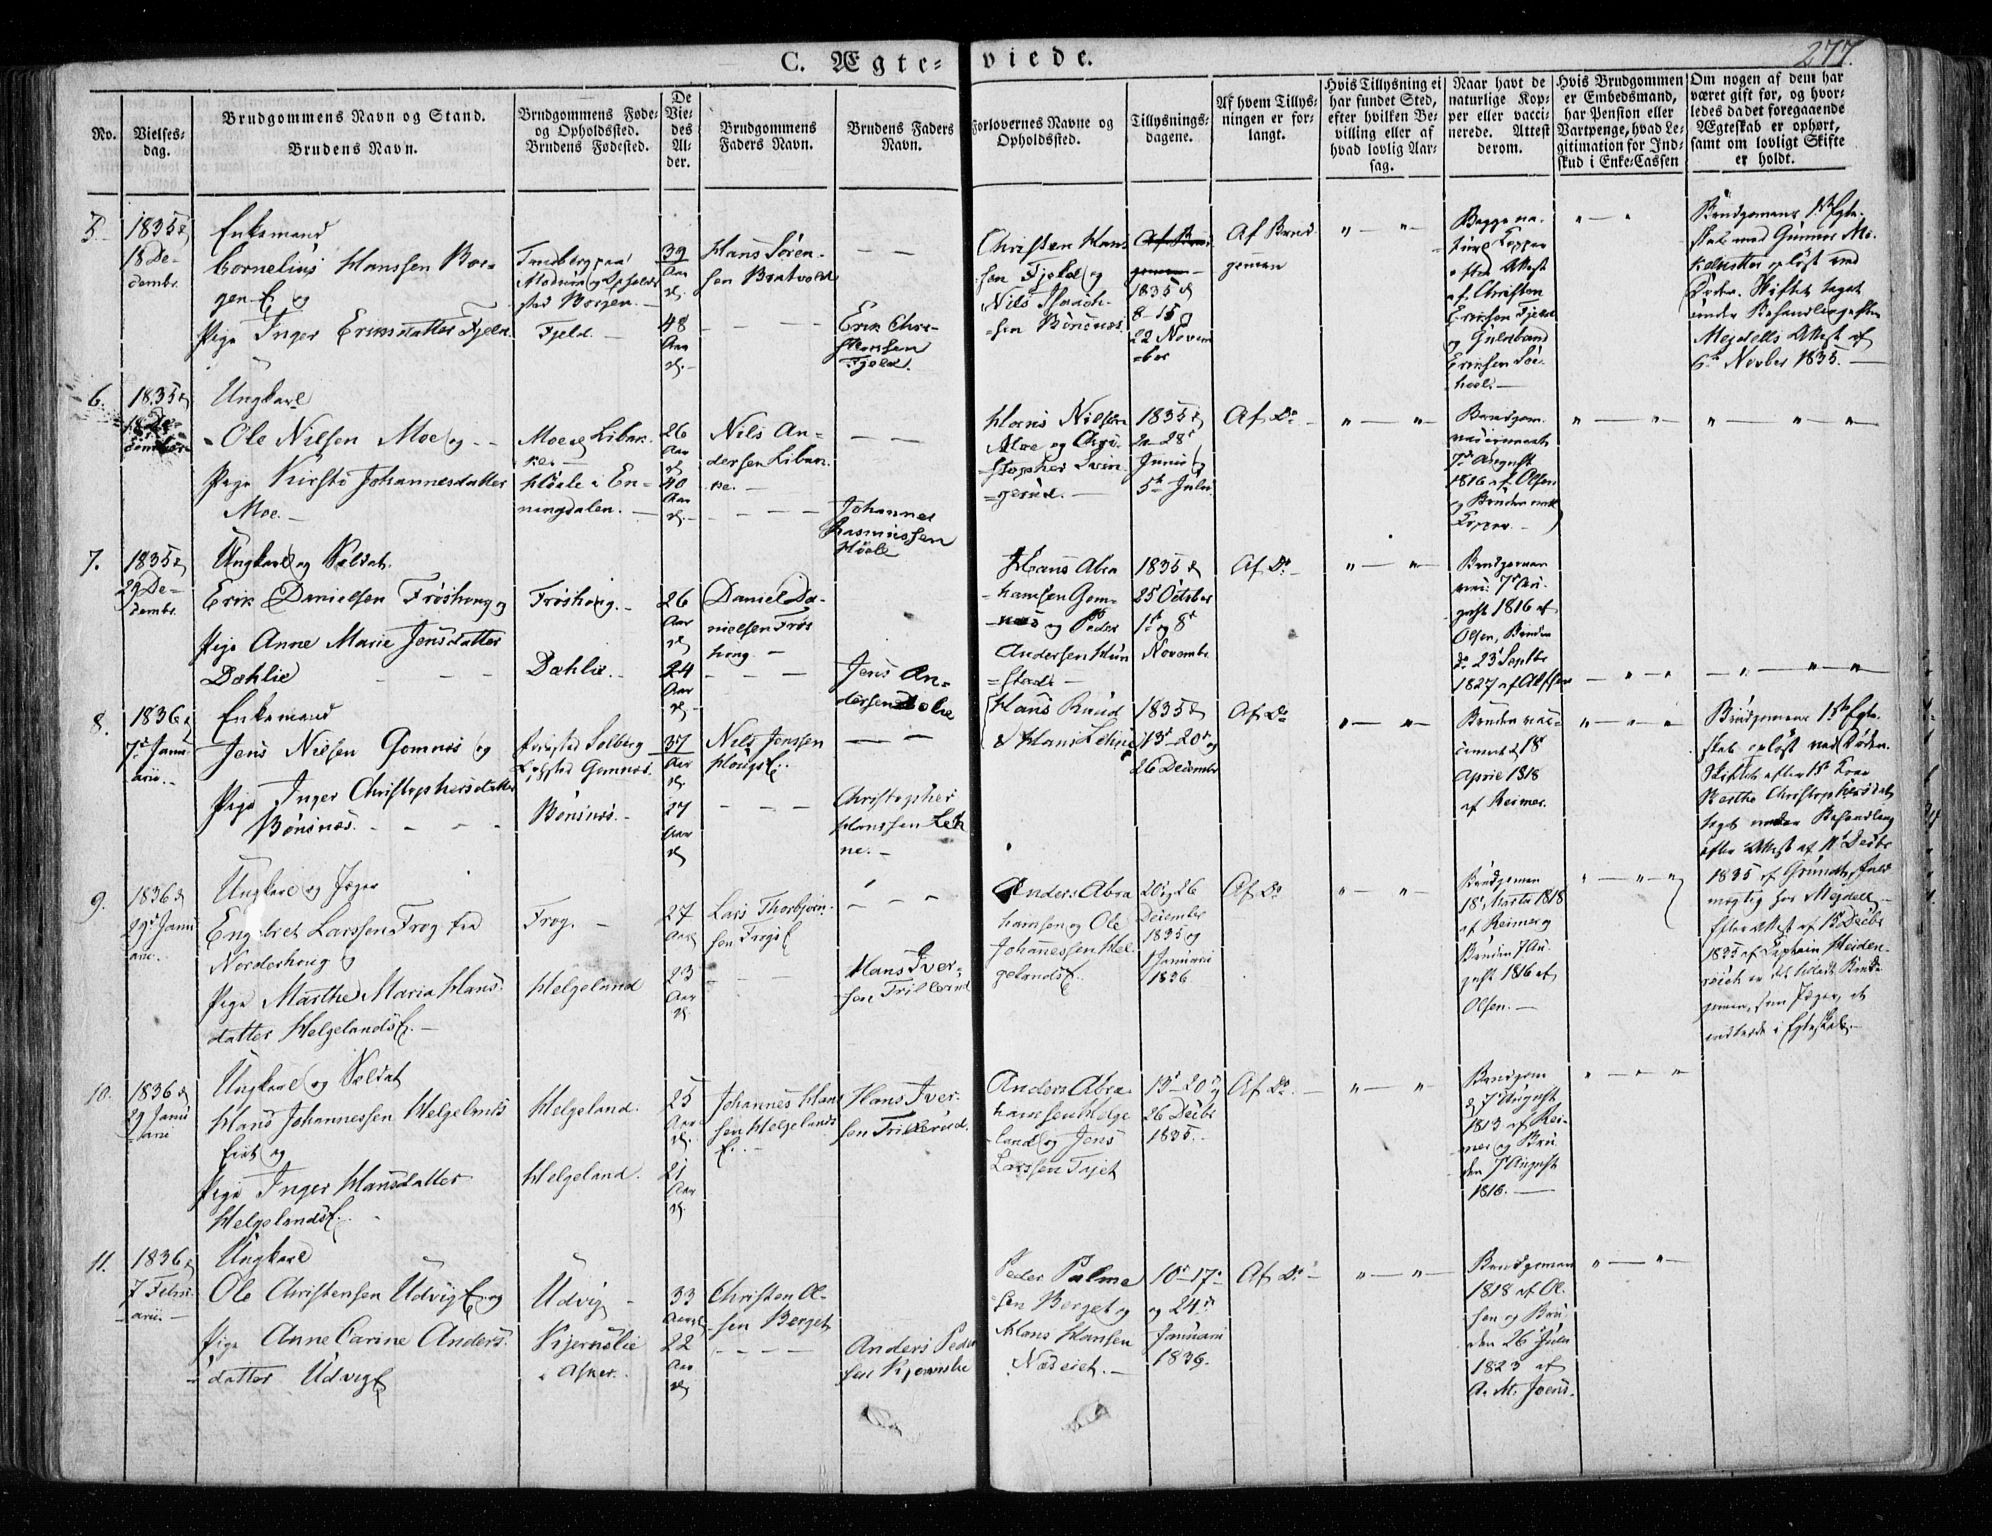 277.
C. Ægte-
viede.
No.
Vielses-
dag.
Brudgommens Navn og Stand.
Brudens Navn.
Brudgommens Føde-
og Opholdssted.
Brudens Fødested.
De
Vie-
des
Al-
der.
Brudgommens
Faders Navn.
Brudens Faders
Navn.
Forlovernes Navne og
Opholdssted.
Tillysnings-
dagene.
Af hvem Tillys-
ningen er for-
langt.
Hvis Tillysning ei
har fundet Sted,
efter hvilken Be-
villing eller af
hvad lovlig Aar-
sag.
Naar havt de
naturlige Kop-
per eller vacci-
nerede. Attest
derom.
Hvis Brudgommen
er Embedsmand,
har Pension eller
Vartpenge, hvad Le-
gitimation for Ind-
skud i Enke-Cassen
Om nogen af dem har
været gift før, og hvor-
ledes da det foregaaende
Ægteskab er ophørt,
samt om lovligt Skifte
er holdt.
5.
1835
18 De-
cembr.
Enkemand
Cornelius Hanssen Bor-
gen E. og
Pige Inger Eriksdatter Fjeld.
Modum og Opholds
sted Borgen.
Fjeld.
39
Aar
48
Aar
Hans Søren-
sen Bratvold
Erik Chri-
stensen
Fjeld.
Christen Hans
sen Fjeld og
Nils
sen Bönsnæs.
1835
8 - 15 og
22 Novem
ber
Af Brud
gomen
Begge na-
turl. Kopper
efter Attest
af Christen
Eriksen Fjeld
og Gulbrand
Eriksen
Brudgomens 1ste Egte-
skab med Gunner Mi-
kelsdatter opløst ved
Døden. Skiftet taget
under Behandling efter
Mejdells Attest af
6te Novber 1835.
6.
1835
18 De-
cember
Ungkarl
Ole Nilsen Moe og
Pige Kirsti Johannesdatter
Moe.
26
Aar
40
Aar
Nils An-
dersen
Johannes
Rasmussen
Höele
Hans Nilsen
Moe og Chri-
stopher Svin-
gerud.
1835
28
Junii og
5te Julii
Af Do
Brudgom.
vaccineret
7de August
1816 af Olsen
og Bruden nat.
Kopper.
7.
1835
29 De-
cembr.
Ungkarl og Soldat.
Erik Danielsen Fröshoug og
Pige Anne Marie Jensdatter
Dæhlie
Fröshoug.
Dæhlie.
26
Aar
24
Aar
Daniel Da-
nielsen Frös
houg.
Jens An-
dersen Dælie
Hans Abra
hamsen Gom-
næs og Peder
Andersen Hun
stad
1835
25 October
1te og 8de
Novembr
Af Do
Brudgomen
vac. 7de Au-
gust 1816 af
Olsen, Bruden
do 23 Septbr
1827 af Alfsen
8.
1836
7de Janu
arii.
Enkemand
Jens Nilsen Gomnæs og
Pige Inger Christophersdatter
Bönsnæs.
Födested Solberg
Opsted Gomnæs.
Bönsnæs.
37
Aar
27
Aar
Nils Jenssen
Christopher
Hanssen Leh
ne.
Hans Ruud
& Hans Lehne
1835
13 - 20 og
26 Decembr
Af Do
Bruden vac-
cineret d. 18
April 1818
af Reimer.
Brudgomens 1ste Egte-
skab opløst ved Døden.
Skiftet efter 1ste Kone
Marthe Christophersdat.
taget under Behandling
efter Attest af 11te Decbr
1835 af Grundt, Fuld
mægtig hos Mejdell.
9.
1836
29 Janu
arii.
Ungkarl og Jæger
Engebret Larssen Frog fra
Norderhoug og
Pige Marthe Maria Hans
datter Helgelands E.
Frog.
Helgeland
27
Aar
23
Aar
Lars Thorbjörn-
sen Frogs E
Hans Iver-
sen Trillerud
Anders Abra
hamsen og Ole
Johannessen Hel
gelands E.
20 og 26
December
1835 og
1 Januarii
1836
Af Do
Brudgomen
18 Marts 1818
af Reimer og
Bruden 7 Au-
gust 1816 af
Olsen.
Efter Attest af 15 Decbr
1835 af Capitain Heiden-
reich er det tilladt Brud-
gomen, som Jæger, at
indtræde i Egteskab.
10.
1836
29 Janu
arii
Ungkarl og Soldat
Hans Johannessen Helgelands
Eiet og
Pige Inger Hansdatter
Helgelands E.
Helgeland.
Helgeland.
25
Aar
21
Aar
Johannes Han
sen Helgelands
E.
Hans Iver-
sen Trillerud.
Anders Abra
hamsen Helge
land og Jens
Larssen
13 - 20 og
26 Decbr
1835.
Af Do
Brudgom
d. 7 August
1813 af Rei-
mer og Bru
den 7 August
1816.
11.
1836
7 Febru-
arii.
Ungkarl
Ole Christensen Udvig E. og
Pige Anne Carine Anders
datter Udvig E
Udvig
Kjernslie
i Asker.
33
Aar
22
Aar
Christen Ol-
sen Berget
Anders Peder
sen Kjernslie
Peder Palme
sen Berget og
Hans Hansen
Næseiet.
10 - 17
og 24
Januarii
1836.
Af Do
Brudgomen
1818 af Ol-
sen og Bru
den 26 Julii
1823 af
A. M. Joens.